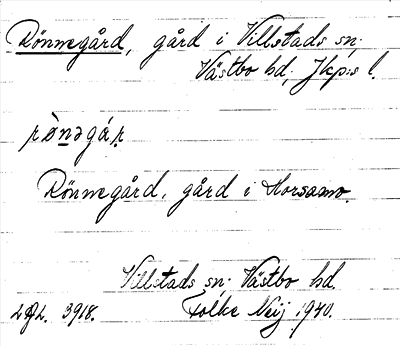 Rönnegård, gård i Villstads sn.
Västbo hd, Jkp:s l.
Rönnegård, gård i Horsamo.
Villstads sn. Västbo hd.
3918. Folke Neij 1940.